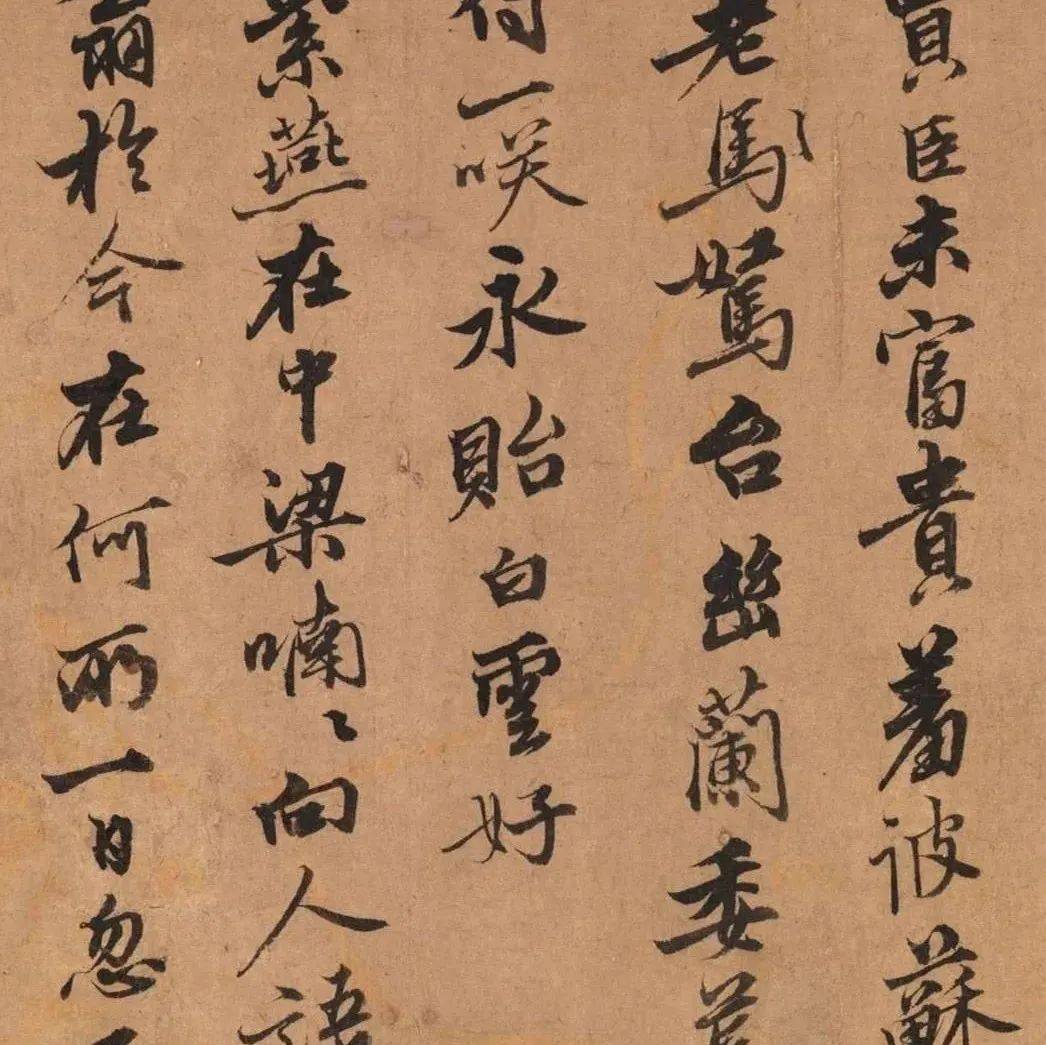 買臣未富貴羞被蘇
老馬駑台幽蘭委
待一咲永貽白雲好
紫燕在中梁喃〻向人語
翁於今在何所一日忽